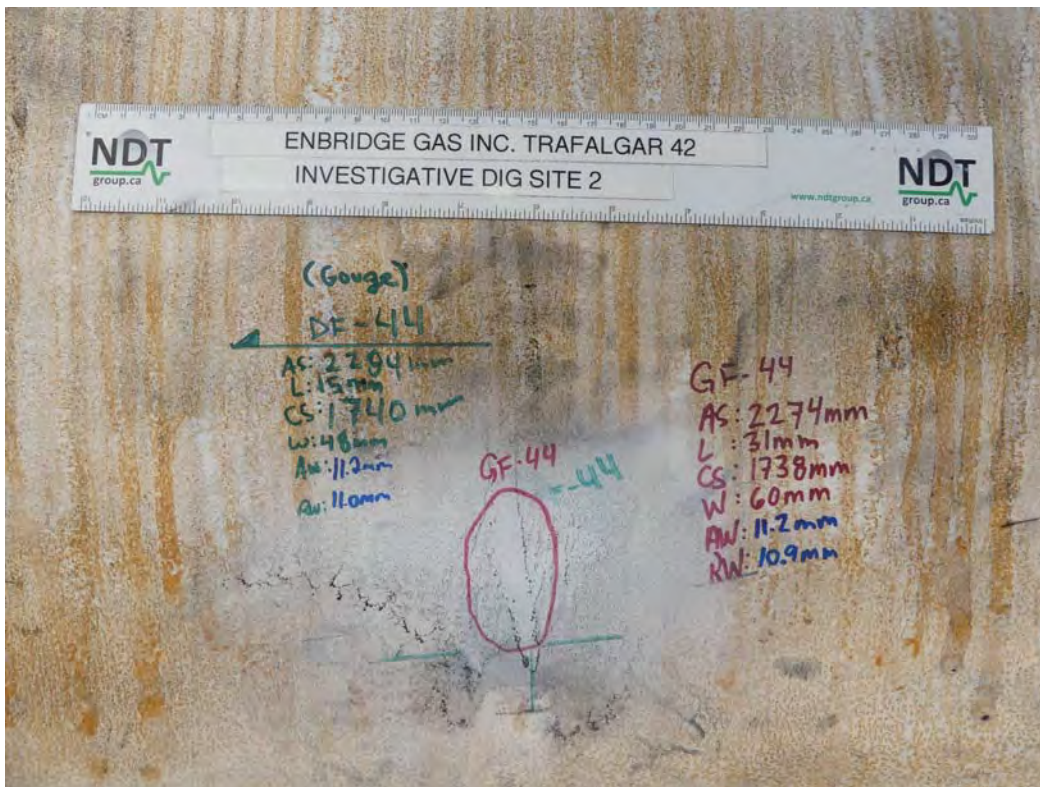 NDT
group.ca
ENBRIDGE GAS INC. TRAFALGAR 42
INVESTIGATIVE DIG SITE 2
www.ndtgroup.ca
NDT
group.ca
(Gouge)
DF-44
AS: 2284mm
L: 15mm
CS: 1740mm
W: 48mm
AW: 11.2mm
RW: 11.0mm
GF-44
-44
GF-44
AS: 2274mm
L: 31mm
CS: 1738mm
W: 60mm
AW: 11.2mm
RW: 10.9mm